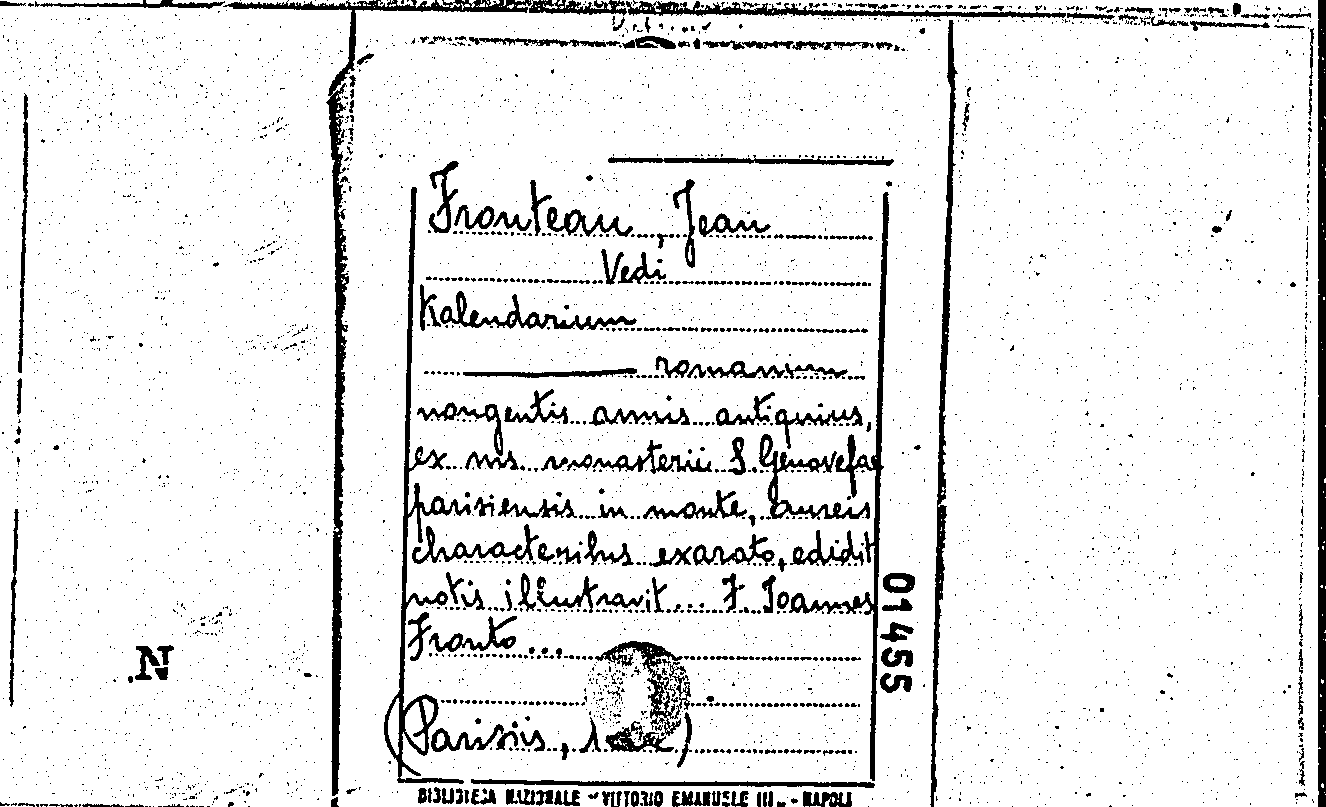 Fronteau, Jean
Vedi
Kalendarium
romanum
nongentis annis antiquius,
ex ms. monasterii S. Genovefae
parisiensis in monte, aureis
characteribus exarato, edidit
notis illustravit... F. Joannes
Fronto...
(Parisiis,
01455
N
BIBLIOTECA NAZIONALE - VITTORIO EMANUELE III - NAPOLI